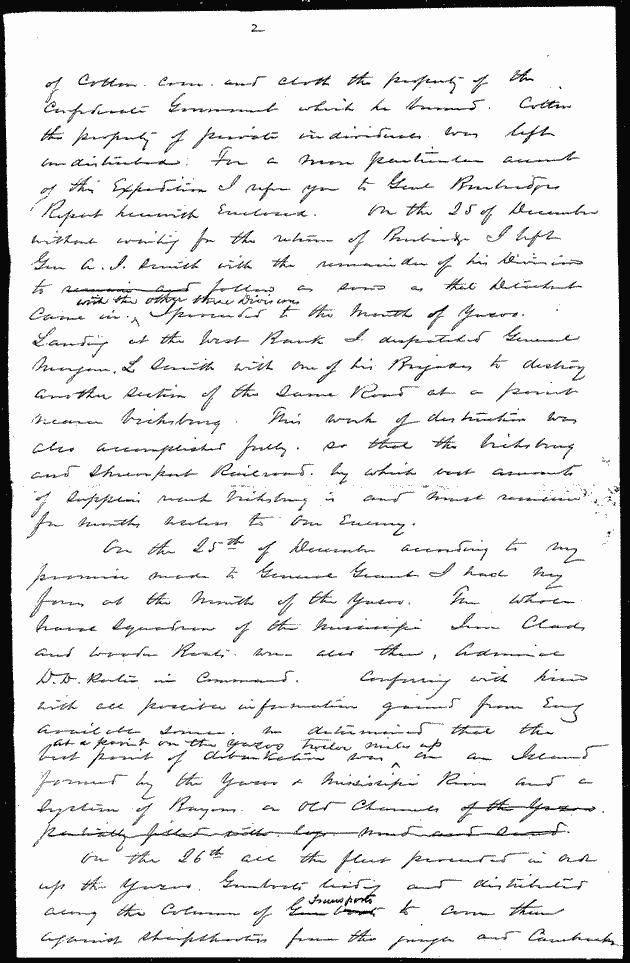 2
of Cotton. Corn. and cloth the property of the
Confederate Government which he burned. Cotton
the property of private individuals was left
undisturbed. For a more particular account
of this Expedition I refer you to Genl Burbridges
Report herewith Enclosed. On the 25 of December
without waiting for the return of Burbridge I left
Gen A. J. Smith with the remainder of his Division
to remain and follow as soon as that Detachmt
with the other three Divisions
Came in. ^ I proceeded to the Mouth of Yazoo.
Landing at the West Bank I dispatched General
Morgan. L Smith with one of his Brigades to destroy
another section of the same Road at a point
nearer Vicksburg. This work of destruction was
also accomplished fully. so that the Vicksburg
and Shreveport Railroad. by which vast amounts
of supplies reach Vicksburg is and must remain
for months useless to our Enemy.
On the 25th of December according to my
promise made to General Grant I had my
force at the Mouth of the Yazoo. The whole
naval Squadron of the Mississippi Iron Clads
and wooden Boats. were also there, Admiral
D.D. Porter in Command. Conferring with him
with all possible information gained from Evy
available source. we determined that the
at a point on the Yazoo twelve miles up
best point of debarkation was ^ on an Island
formed by the Yazoo & Mississippi River and a
System of Bayous or old Channels of the Yazoo.
partially filled with logs mud and sand.
On the 26th all the fleet proceeded in order
up the Yazoo. Gunboats leading and distributed
Transports
along the Column of Gun boats to cover them
against sharpshooters from the jungle and Canebrakes